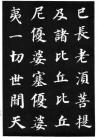 已長老須菩提
及諸比丘比丘
尼優婆塞優婆
夷一切世間天